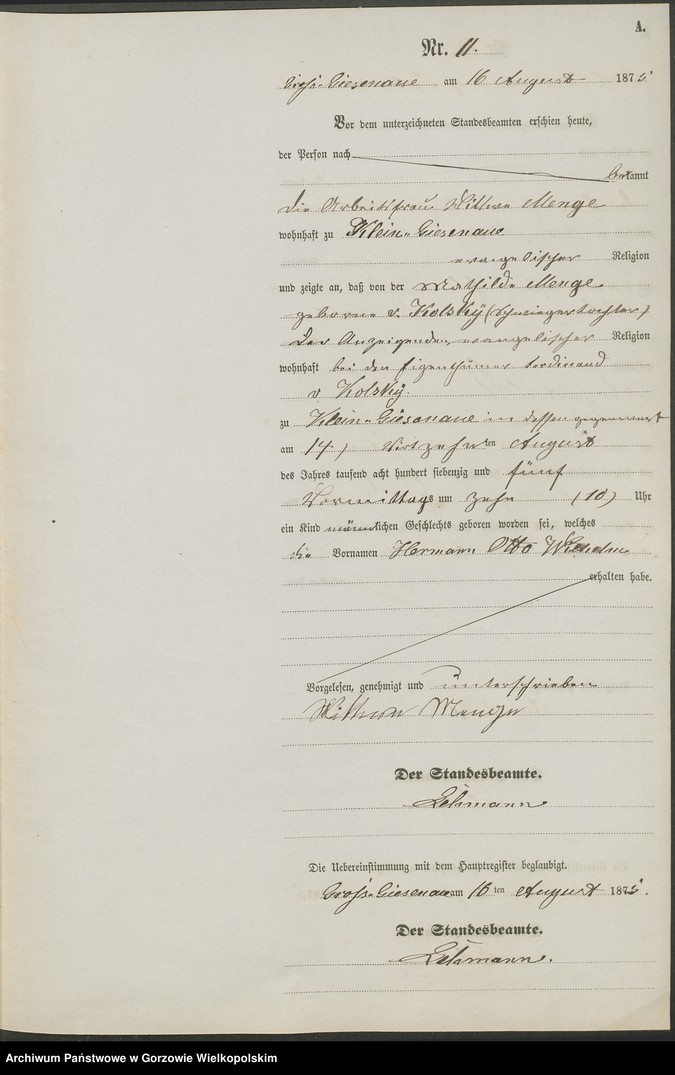 A.
Nr. 11.
Groß-Giesenaue am 16 August 1875
Vor dem unterzeichneten Standesbeamten erschien heute,
der Person nach
bekannt
die Arbeitsfrau Wittwe Menge
wohnhaft zu Klein-Giesenaue
evangelischer Religion
und zeigte an, daß von der Mathilde Menge
geborne v. Kolsky (Schwiegertochter)
der Anzeigenden, evangelischer Religion
wohnhaft bei den Eigenthümer Ferdinand
v Kolsky.
zu Klein-Giesenaue in dessen gegenwart
am 14, Virtzehnten August
des Jahres tausend acht hundert siebenzig und fünf
Vormittags um Zehn (10) Uhr
ein Kind männlichen Geschlechts geboren worden sei, welches
die Vornamen Hermann Otto
erhalten habe.
Vorgelesen, genehmigt und unterschrieben
Wittwe Menge
Der Standesbeamte.
Lehmann
Die Uebereinstimmung mit dem Hauptregister beglaubigt.
Groß-Giesenaue am 16ten August 1875.
Der Standesbeamte.
Lehmann.
Archiwum Państwowe w Gorzowie Wielkopolskim